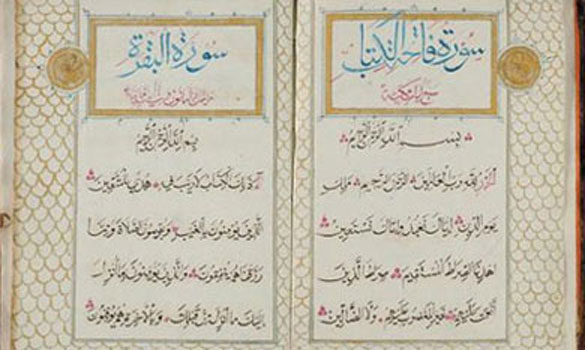 سورة فاتحة الكتاب
بسم الله الرحمن الرحيم
الحمد لله رب العالمين الرحمن الرحيم مالك
يوم الدين اياك نعبد واياك نستعين
اهدنا الصراط المستقيم صراط الذين
انعمت عليهم غير المغضوب عليهم ولا الضالين
سورة البقرة
بسم الله الرحمن الرحيم
الم ذلك الكتاب لا ريب فيه هدى للمتقين
الذين يؤمنون بالغيب ويقيمون الصلاة ومما
رزقناهم ينفقون والذين يؤمنون بما انزل
اليك وما انزل من قبلك وبالاخرة هم يوقنون